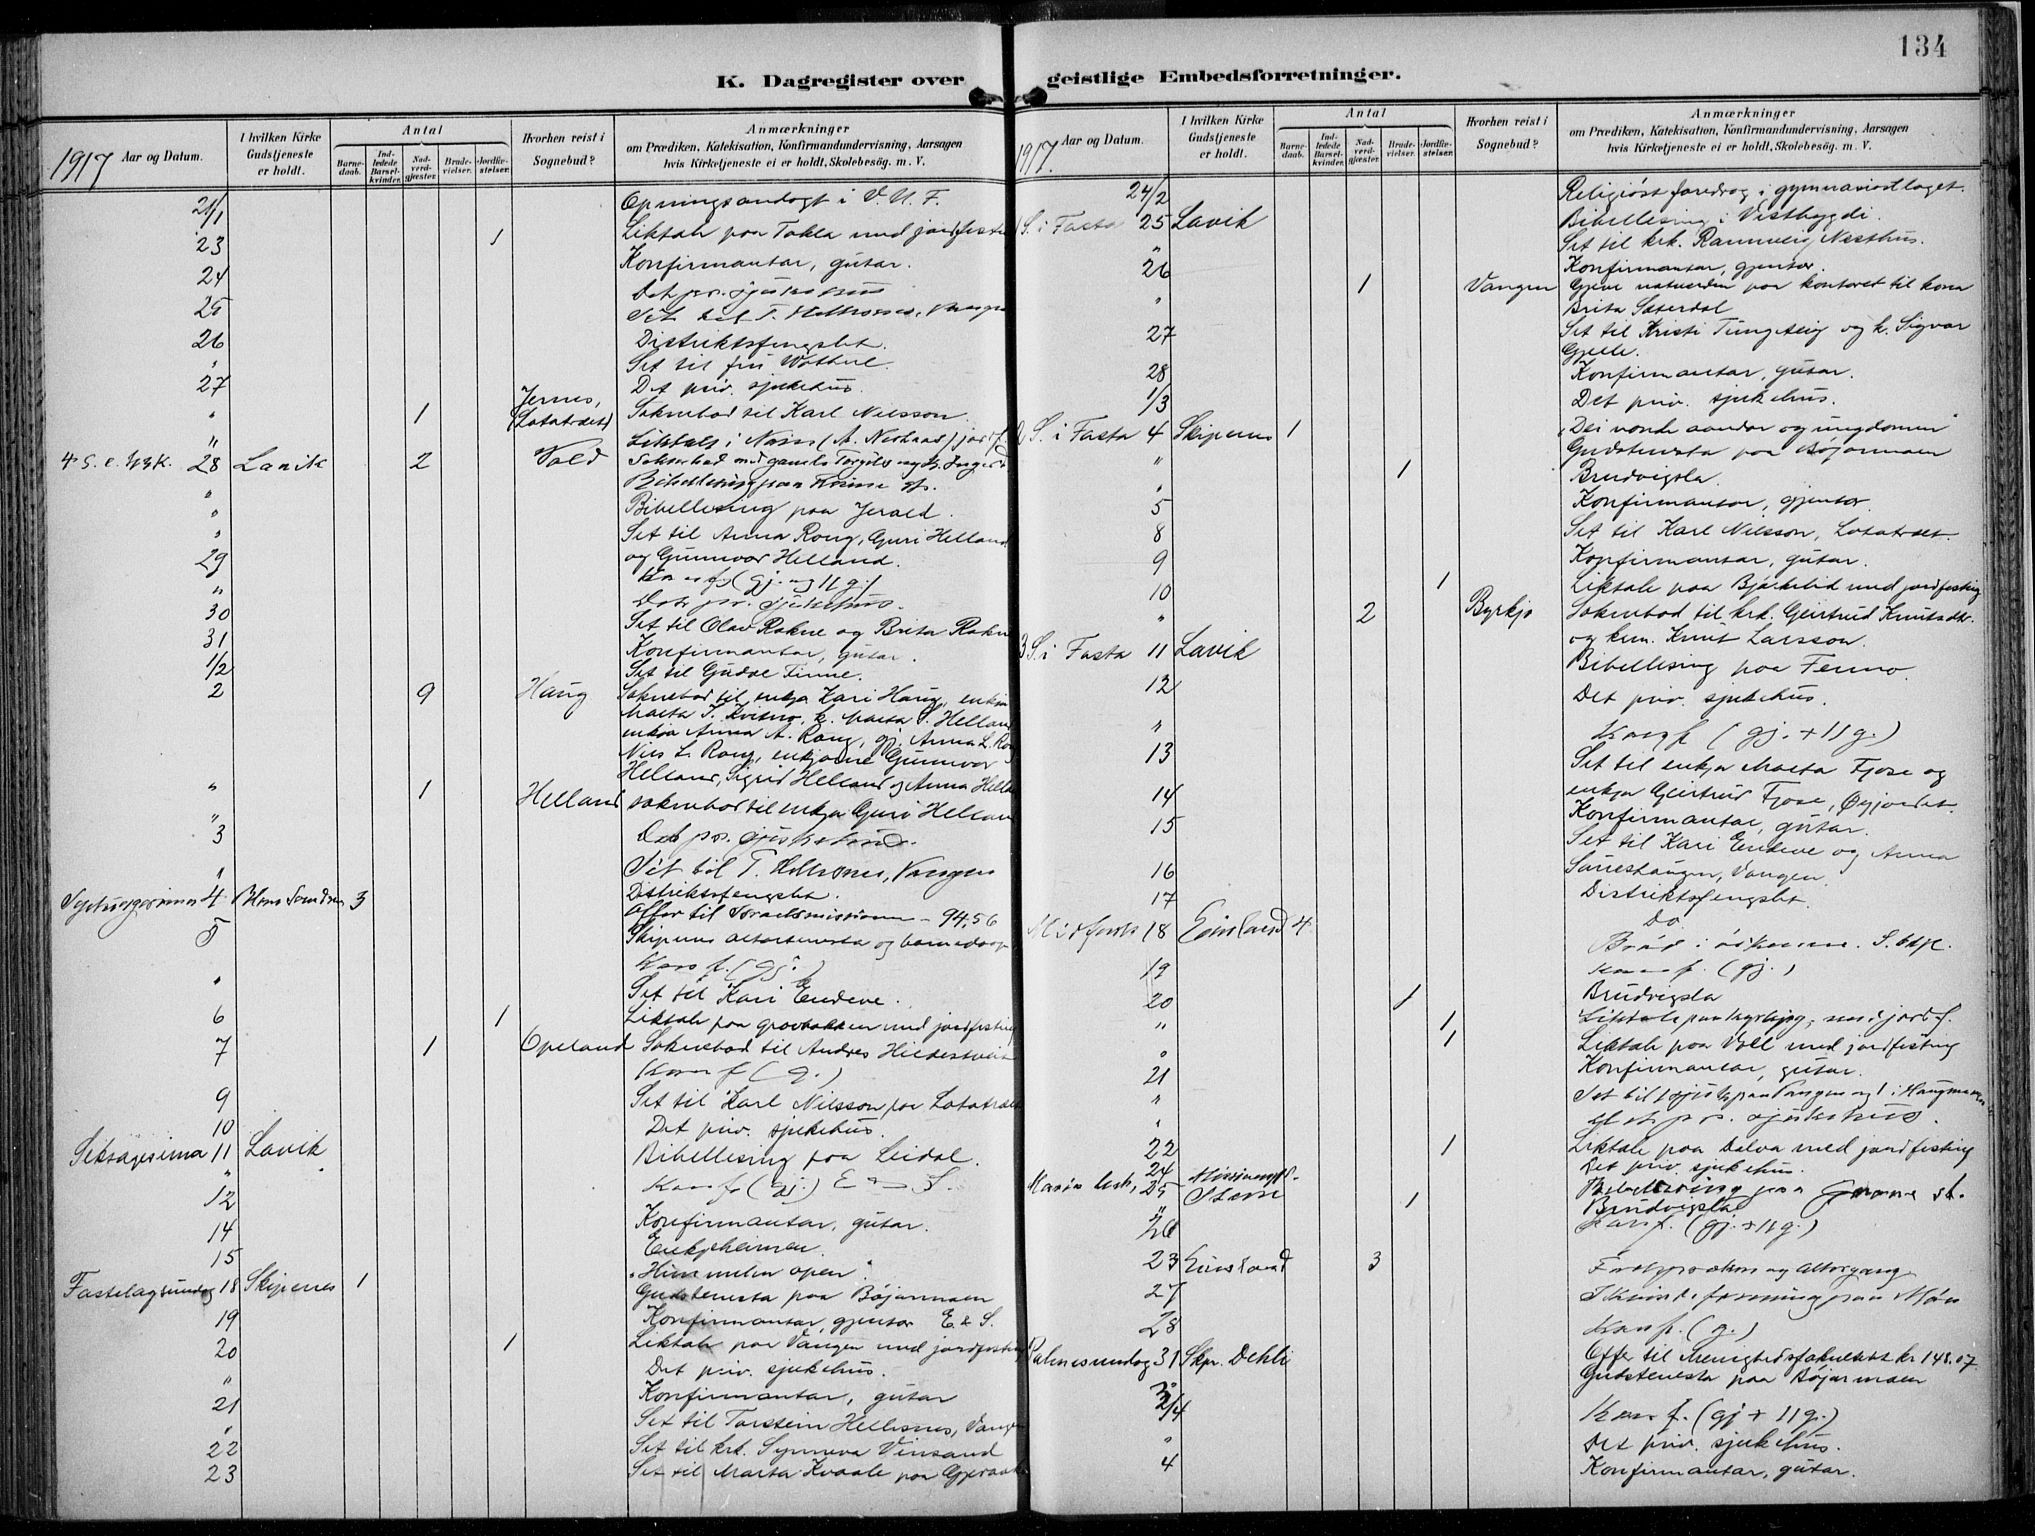 134
K. Dagregister over geistlige Embedsforretninger.
1917 Aar og Datum.
I hvilken Kirke Gudstjeneste er holdt.
Antal
Barnedaab.
Indledede Barselkvinder.
Nadverdgjæster.
Brudevielser.
Jordfæstelser.
Hvorhen reist i Sognebud?
Anmærkninger
om Prædiken, Katekisation, Konfirmandundervisning, Aarsagen
hvis Kirketjeneste ei er holdt, Skolebesøg. m. V.
21/1 Opningsandagt i V. U. F.
23 1 Liktale paa Takla med jordfeste
24 Konfirmantar, gutar.
25 Det pr. sjukehus
Set til T.
26 Distriktsfengslet.
" Set til fru
27 Det priv. sjukehus.
" 1 Jernes, (Lotatræet) Soknebod til Karl Nilsson.
"
4 S. e. H3K. 28 Lavik 2 Vold
"
" Bibellesing paa Jerald.
" Set til Anna Rong, Guri Helland
29 og Gunnvor Helland.
Konf. (gj. og 11 g.)
" Det pr. sjukehus.
30 Set til Olav Rokne og Brita Rokne
31 Konfirmantar, gutar.
1/2 Set til Gudve Finne.
2 9 Haug Soknebod til enkja Kari Haug, enkja
Marta S. Kvitno, k. Marta S. Helland
enkja Anna A. Rong, gj. Anna L. Rong
Nils L. Rong, enkjorne Gunnvor
Helland, Sigrid Helland og Anna Hella
" 1 Helland soknebod til enkja Guri Helland
"
3 Det pr. sjukehus.
" Set til T. Vangen
Distriktsfengslet.
4 3 Offer til Israelsmissionen - 94,56
5 Skipenes altartenesta og barnedaap
Konf. (gj.)
" Set til Kari Endeve.
6 1 Liktale paa grovbakken med jordfesting
7 1 Opeland Soknebod til Andres Hildestveit
Konf (g.)
9 Set til Karl Nilsson paa Lotatræet
10 Det priv. sjukehus.
Seksagesima 11 Lavik Bibellesing paa Leidal.
" Konf. (gj.) E & S.
12
14 Konfirmantar, gutar.
15 Enkjeheimen.
"Himmelen open".
Fastelagsundag 18 Skipenes 1 Gudstenesta paa Bøjarmoen
19 Konfirmantar, gjentor E. & S.
20 1 Liktale paa Vangen med jordfesting
" Det priv. sjukehus.
21 Konfirmantar, gutar
" Set til Torstein Hellesnes, Vangen
22 Set til krk. Synneva Vinsand
23 Set til Marta Kvaale paa Gjeraaker
1917. Aar og Datum.
I hvilken Kirke Gudstjeneste er holdt.
Antal
Barnedaab.
Indledede Barselkvinder.
Nadverdgjæster.
Brudevielser.
Jordfæstelser.
Hvorhen reist i Sognebud?
Anmærkninger
om Prædiken, Katekisation, Konfirmandundervisning, Aarsagen
hvis Kirketjeneste ei er holdt, Skolebesøg. m. V.
24/2 Religiøst foredrag i gymnasiastlaget.
1 S. i Fasta 25 Lavik Bibellesing i Vestbygdi.
" Set til krk. Rannveig Næsthus.
26 Konfirmantar, gjentor.
" 1 Vangen Gjeve natverden paa kontoret til kona
Brita Sæterdal
27 Set til Kristi Tungeteig og k. Sigvor
Gjelle.
28 Konfirmantar, gutar.
1/3 Det priv. sjukehus.
2 S. i Fasta 4 Skipenes 1 "Dei vonde aandar og ungdomen"
" 1 Gudstenesta paa Bøjarmoen
" Brudvigsla.
5 Konfirmantar, gjentor.
8 Set til Karl Nilsson, Lotatræet.
9 Konfirmantar, gutar.
10 1 Liktale paa Bjørkelid med jordfesting
" 2 Byrkjo Soknebod til krk. Geirtrud Knutsdtr.
og kem. Knut Larsson.
3 S. i Fasta 11 Lavik Bibellesing paa Fenno.
12 Det priv. sjukehus.
" Konf (gj. + 11 g.)
13 Set til enkja Marta Fjose og
14 enkja Geirtrud Fjose, Øyjordet.
15 Konfirmantar, gutar.
Set til Kari Endeve og Anna
16 Saueshaugen, Vangen.
17 Distriktsfengslet.
Midfasta 18 4 Do.
Brød i
19 Konf. (gj.)
20 1 Brudvigsla
" 1
" 1 Liktale paa Voll med jordfesting
21 Konfirmantar, gutar.
"
"
22 1 Liktale paa Dalva med jordfesting
24 Det priv. sjukehus.
25 Bibellesing paa
" 1 Brudvigsla
26 Konf. (gj. + 11 g.)
23 3
27
28 Konf. (g.)
Palmesundag 31 Skp. Dehli Offer til Menighedsfakultetet kr 148.07
Gudstenesta paa Bøjarmoen
2/4 Konf. (gj + 11 g.)
" Det priv. sjukehus.
4 Konfirmantar, gutar.